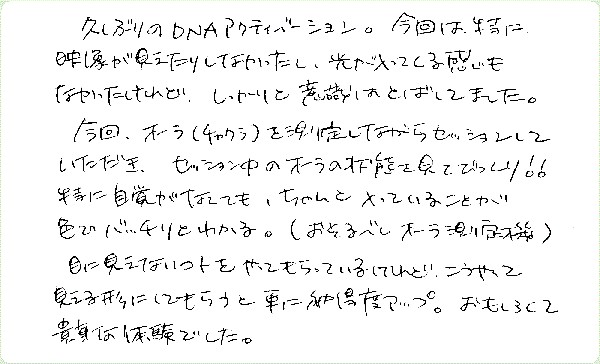 久しぶりのDNAアクティバーション。今回は特に
映像が見えたりしなかったし、光が入ってくる感じも
なかったけれど、しっかりと意識はとばしてました。
今回、オーラ(チャクラ)を測定しながらセッションして
いただき、セッション中のオーラの状態を見てびっくり!!
特に自覚がなくても、ちゃんと入っていることが
色でバッチリとわかる。(おそるべしオーラ測定機)
目に見えないコトをやってもらっているけれど、こうやって
見える形にしてもらうと更に納得度アップ。おもしろくて
貴重な体験でした。